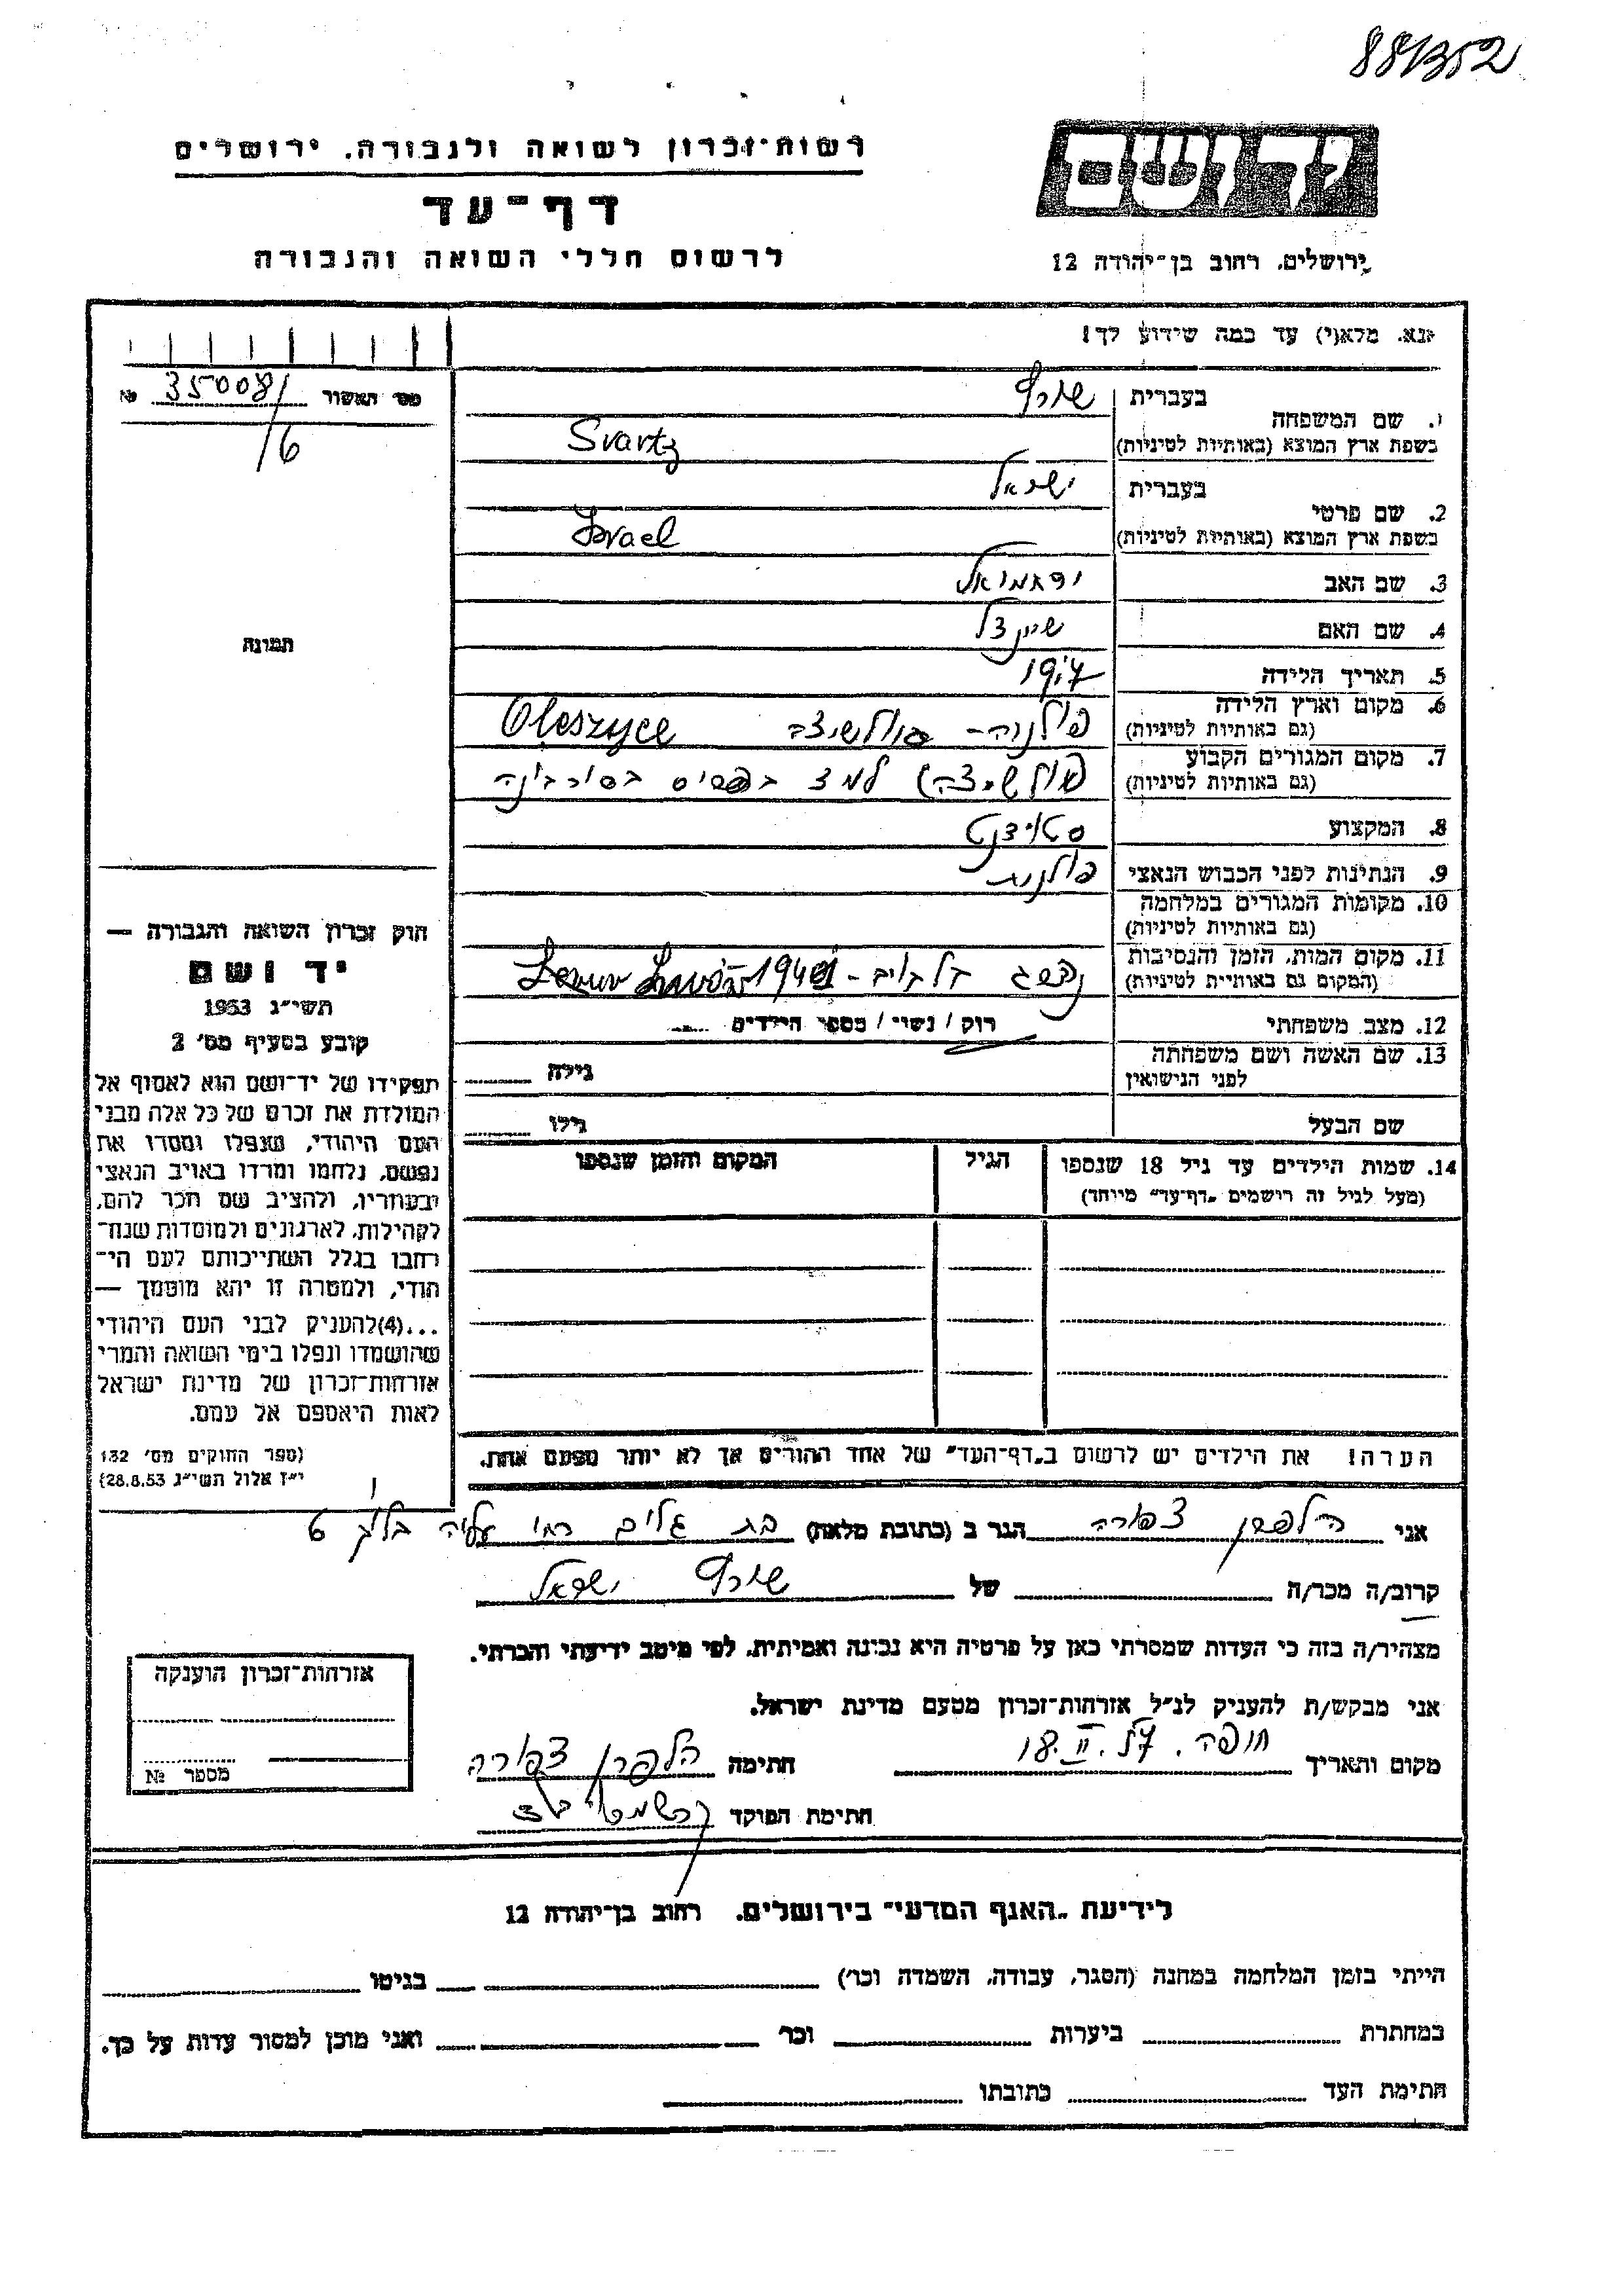 881352
רשות־זכרון לשואה ולגבורה. ירושלים
ירושלים. רחוב בן־יהודה 12
דף־עד
לרשום חללי השואה והגבורה
נא. מלא(י) עד כמה שידוע לך!
מס׳ האשור № 350081/
/6
תמונה
1. שם המשפחה בעברית שורץ
בשפת ארץ המוצא (באותיות לטיניות) Svartz
2. שם פרטי בעברית ישראל
בשפת ארץ המוצא (באותיות לטיניות) Israel
3. שם האב ירחמיאל
4. שם האם שיינצל
5. תאריך הלידה
6. מקום וארץ הלידה
(גם באותיות לטיניות) פולניה - Oleszyce
7. מקום המגורים הקבוע
(גם באותיות לטיניות) למד בפריס בסורבונה
8. המקצוע סטודנט
9. הנתינות לפני הכבוש הנאצי פולנית
10. מקומות המגורים במלחמה
(גם באותיות לטיניות)
11. מקום המות. הזמן והנסיבות
(המקום גם באותיית לטיניות) נהרג בלבוב - 1941
12. מצב משפחתי רוק / נשוי / מספר הילדים
13. שם האשה ושם משפחתה
לפני הנישואין גילה
שם הבעל גילו
14. שמות הילדים עד גיל 18 שנספו הגיל המקום והזמן שנספו
(מעל לגיל זה רישמים „דף־עד״ מיוחד)
הערה! את הילדים יש לרשום ב„דף־העד״ של אחד ההורים אך לא יותר מפעם אחת.
חוק זכרון השואה והגבורה —
יד ושם
תשי״ג 1953
קובע בסעיף מס׳ 2
תפקידו של יד־ושם הוא לאסוף אל
המולדת את זכרם של כל אלה מבני
העם היהודי, שנפלו ומסרו את
נפשם, נלחמו ומרדו באויב הנאצי
ובעוזריו, ולהציב שם וזכר להם,
לקהילות, לארגונים ולמוסדות שנח־
רבו בגלל השתייכותם לעם הי־
הודי, ולמטרה זו יהא מוסמך —
...(4) להעניק לבני העם היהודי
שהושמדו ונפלו בימי השואה והמרי
אזרחות־זכרון של מדינת ישראל
לאות היאספם אל עמם.
(ספר החוקים מס׳ 132
י״ז אלול תשי״ג 28.8.53)
אני הלפרן צפורה הגר ב (כתובת מלאה) בת גלים רח׳ עליה בלוק 6
קרוב/ה מכר/ה של שורץ ישראל
מצהיר/ה בזה כי העדות שמסרתי כאן על פרטיה היא נכונה ואמיתית. לפי מיטב ידיעתי והכרתי.
אני מבקש/ת להעניק לנ״ל אזרחות־זכרון מטעם מדינת ישראל.
מקום ותאריך חיפה. 18.II.57 חתימה הלפרן צפורה
חתימת הפוקד
אזרחות־זכרון הוענקה
מספר №
לידיעת „האגף המדעי״ בירושלים. רחוב בן־יהודה 12
הייתי בזמן המלחמה במחנה (הסגר, עבודה, השמדה וכו׳) בגיטו
במחתרת ביערות וכו׳ ואני מוכן למסור עדות על כך.
חתימת העד כתובתו